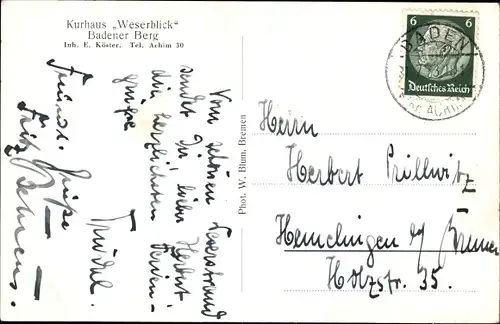 Kurhaus „Weserblick"
Badener Berg
Inh. E. Köster. Tel. Achim 30
Vom schönen Weserstrand
sendet Dir, lieber Herbert
die herzlichsten Ferien-
grüße
Trudel.
Freundl. Grüße
Fritz Behrens.
Phot. W. Blum, Bremen
6 6
Deutsches Reich
BADEN
Herrn
Herbert Prillwitz
Hemelingen b/ Bremen
Holzstr. 35.